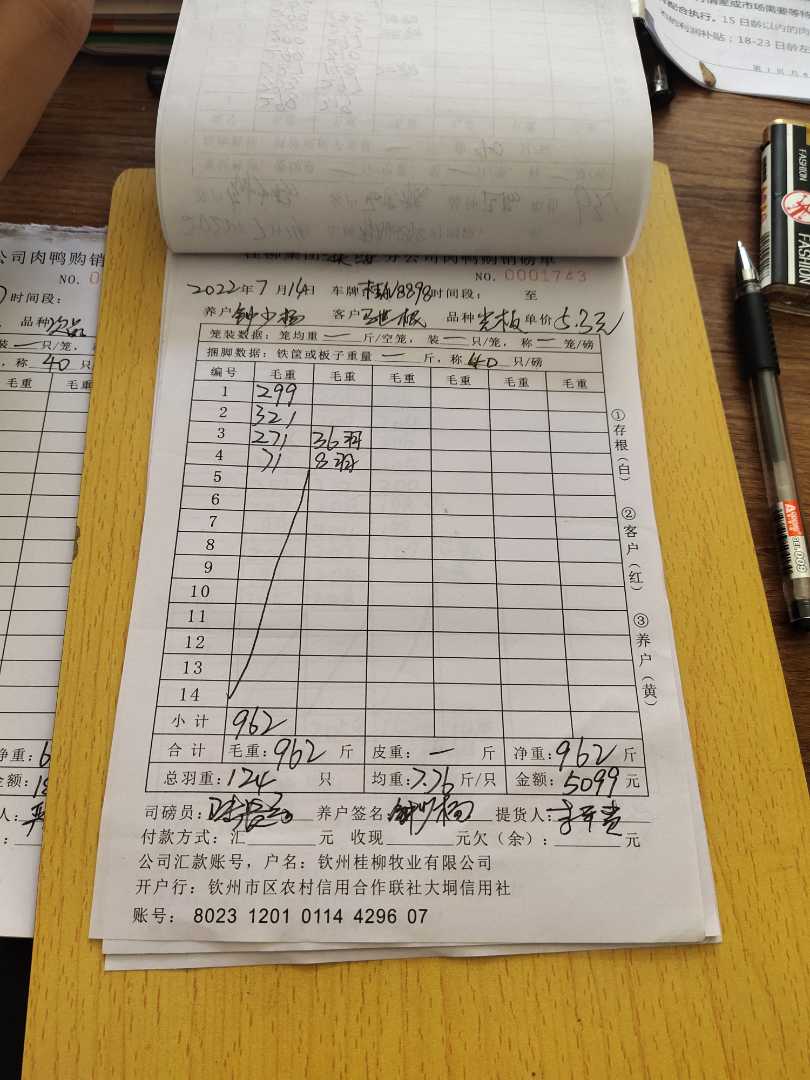 行情差或市场需要等特
配合执行。15日龄以内的肉
的利润补贴；18-23日龄左
FASHION
FASHION
公司肉鸭购销
NO. 0
时间段：
品种 次品
只/笼，
称 40 只/
毛重 毛重
净重：6
金额：18
分公司肉鸭购销磅单
NO. 0001743
2022年7月14日 车牌 8898 时间段： 至
养户 钟少杨 客户 品种 光板 单价 5.3元
笼装数据：笼均重 一 斤/空笼，装 一 只/笼，称 一 笼/磅
捆脚数据：铁筐或板子重量 一 斤，称 40 只/磅
编号 毛重 毛重 毛重 毛重 毛重 毛重
1 299
2 321
3 271 36羽
4 71 8羽
5
6
7
8
9
10
11
12
13
14
小计 962
合计 毛重：962 斤 皮重：一 斤 净重：962 斤
总羽重：124 只 均重：7.76 斤/只 金额：5099 元
司磅员： 养户签名 提货人：
付款方式：汇 元 收现 元欠（余）： 元
公司汇款账号，户名：钦州桂柳牧业有限公司
开户行：钦州市区农村信用合作联社大垌信用社
账号：8023 1201 0114 4296 07
①存根（白）
②客户（红）
③养户（黄）